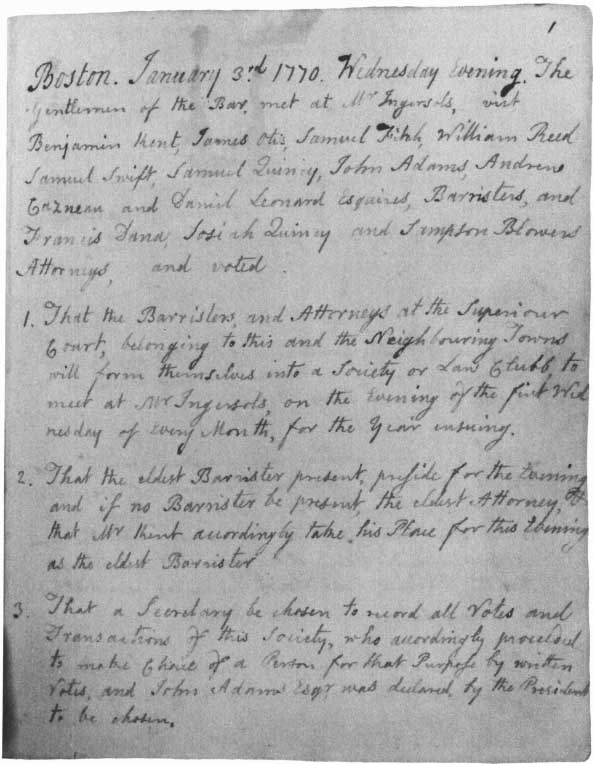 1
Boston. January 3rd 1770. Wednesday Evening. The
Gentlemen of the Bar, met at Mr Ingersols, vizt
Benjamin Kent, James Otis, Samuel Fitch, William Reed
Samuel Swift, Samuel Quincy, John Adams, Andrew
Cazneau and Daniel Leonard Esquires, Barristers, and
Francis Dana, Josiah Quincy and Sampson Blowers
Attorneys, and voted.
1. That the Barristers, and Attorneys at the Superiour
Court, belonging to this and the Neighbouring Towns
will form themselves into a Society or Law Clubb, to
meet at Mr Ingersols, on the Evening of the first Wed
nesday of Every Month, for the Year ensuing.
2. That the eldest Barrister present, preside for the Evening
and if no Barrister be present, the eldest Attorney, &
that Mr Kent accordingly take his Place for this Evening
as the eldest Barrister
3. That a Secretary be chosen to record all Votes and
Transactions of this Society, who accordingly proceeded
to make Choice of a Person for that Purpose by written
Votes, and John Adams Esqr was declared, by the President
to be chosen.